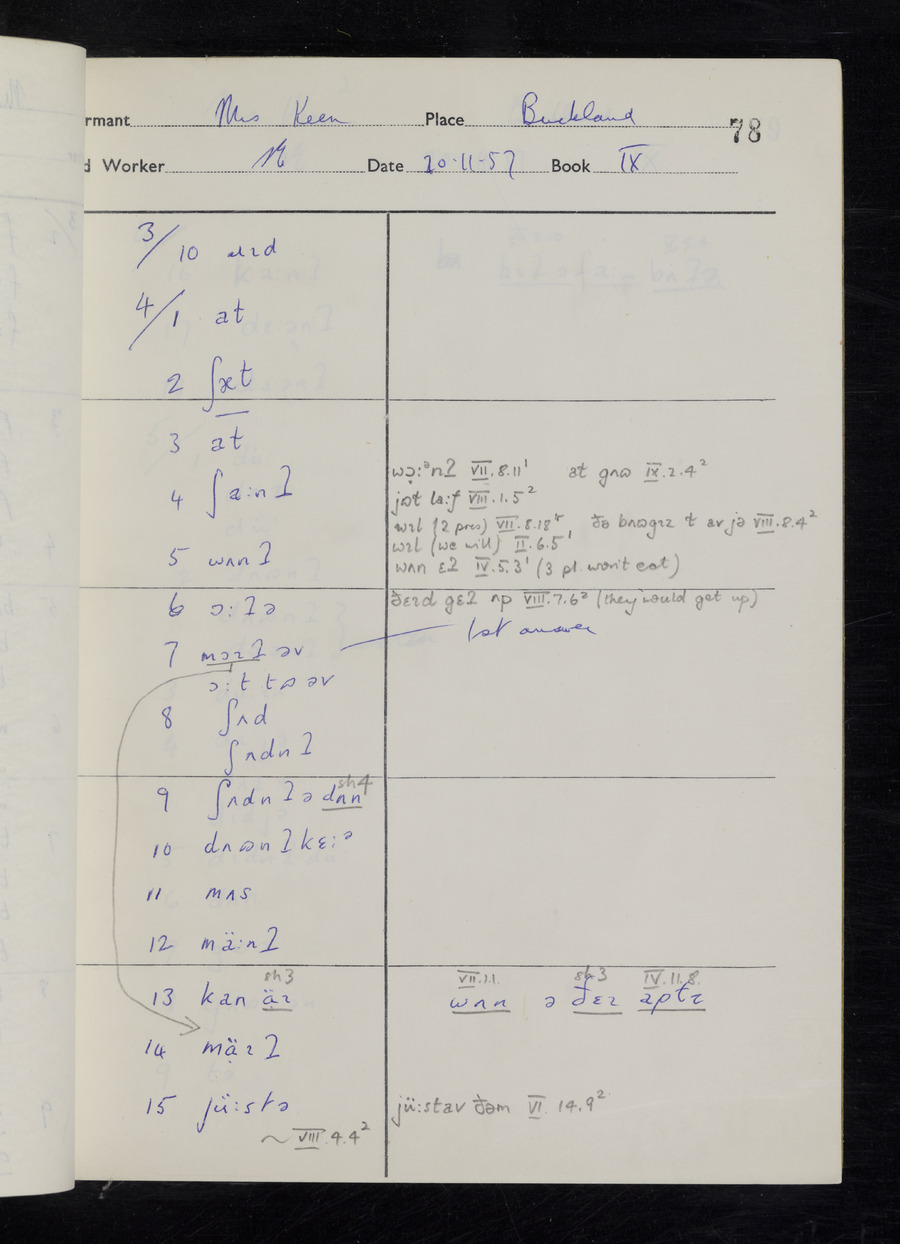 rmant Mrs Keen Place Buckland 78
d Worker Date 20-11-57 Book IX
3/10
4/1 at
2 ʃæt
3 at
4 ʃa:nʔ
wɔ̣:ᵊnʔ VII.8.11¹ at gʌɷ IX.2.4²
jɷt la:f VIII.1.5²
wɪl (2 pres) VII.8.18 ðə bʌɷgɪz t av jə VIII.8.4²
wɪl (we will) II.6.5¹
5 wʌnʔ
wʌn ɛʔ IV.5.3¹ (3 pl. won't eat)
6 ɔ:ʔə
ðɛɪd gɛʔ ʌp VIII.7.6² (they would get up)
7 məɪʔ əv 1st answer
ɔ:t tɷ əv
8 ʃʌd
ʃʌdnʔ
9 ʃʌdnʔ ə dʌn sh4
10 dʌɷnʔ kɛ:ᵊ
11 mʌs
12 mä:nʔ
13 kan äɪ sh3
VII.1.1. sh3 IV.11.8.
wʌn ə ðɛɪ
14 mäɪʔ
15 jü:stə
jü:stav ðəm VI.14.9²
~ VIII.4.4²